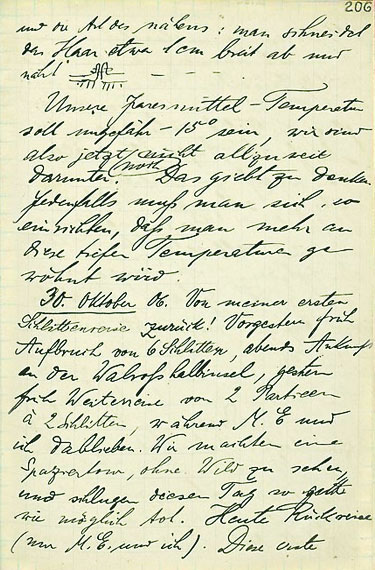 206
und die Art des nähens: man schneidet
das Haar etwa 1 cm breit ab und
näht
Unsere Jaresmittel-Temperatur
soll ungefähr -15° sein, wir sind
also jetzt noch nicht allzuweit
darunter. Das giebt zu denken.
Jedenfalls muß man sich so
einrichten, daß man mehr an
diese tiefen Temperaturen ge
wöhnt wird.
30. Oktober 06. Von meiner ersten
Schlittenreise zurück! Vorgestern früh
Aufbruch von 6 Schlitten, abends Ankunft
an der Walroßhalbinsel, gestern
früh Weiterreise von 2 Partieen
à 2 Schlitten, während M. E und
ich dablieben. Wir machten eine
Spatziertour, ohne Wild zu sehen,
und schlugen diesen Tag so gut
wie möglich tot. Heute Rückreise
(nur M. E. und ich). Diese erste